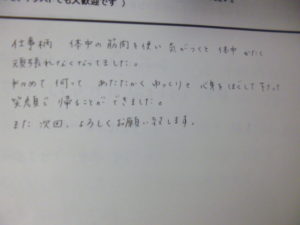 てても大歓迎です )
仕事柄 体中の筋肉を使い 気がつくと 体中 かたく
頑張れなくなってました。
初めて 伺って あたたかく ゆっくりと 心身を ほぐして もらって
笑顔で 帰ることが できました。
また 次回、よろしく お願い致します。